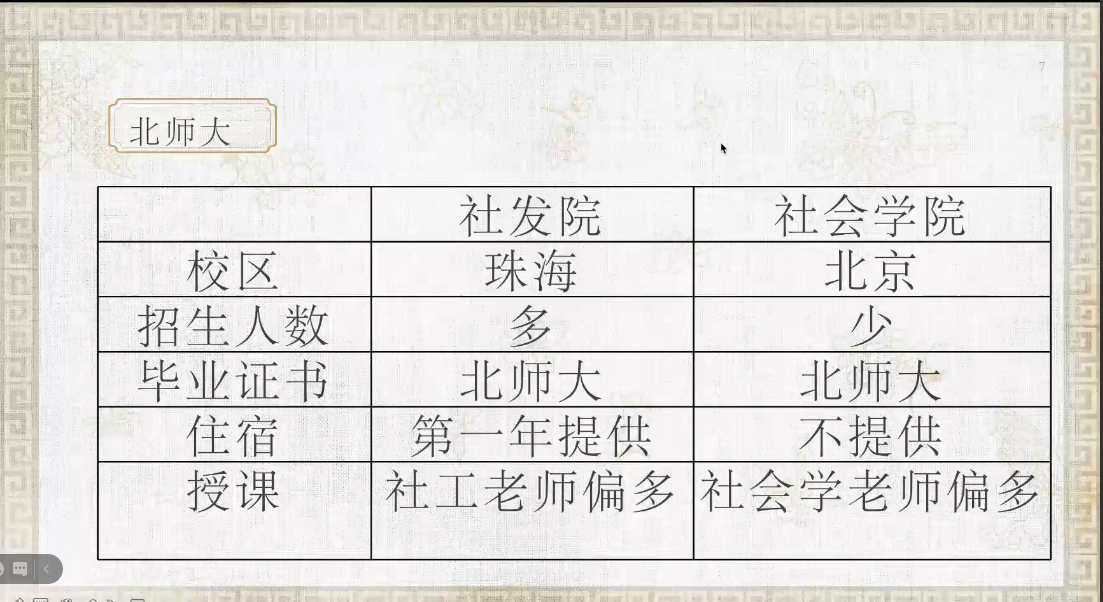 7
北师大
社发院 社会学院
校区 珠海 北京
招生人数 多 少
毕业证书 北师大 北师大
住宿 第一年提供 不提供
授课 社工老师偏多 社会学老师偏多